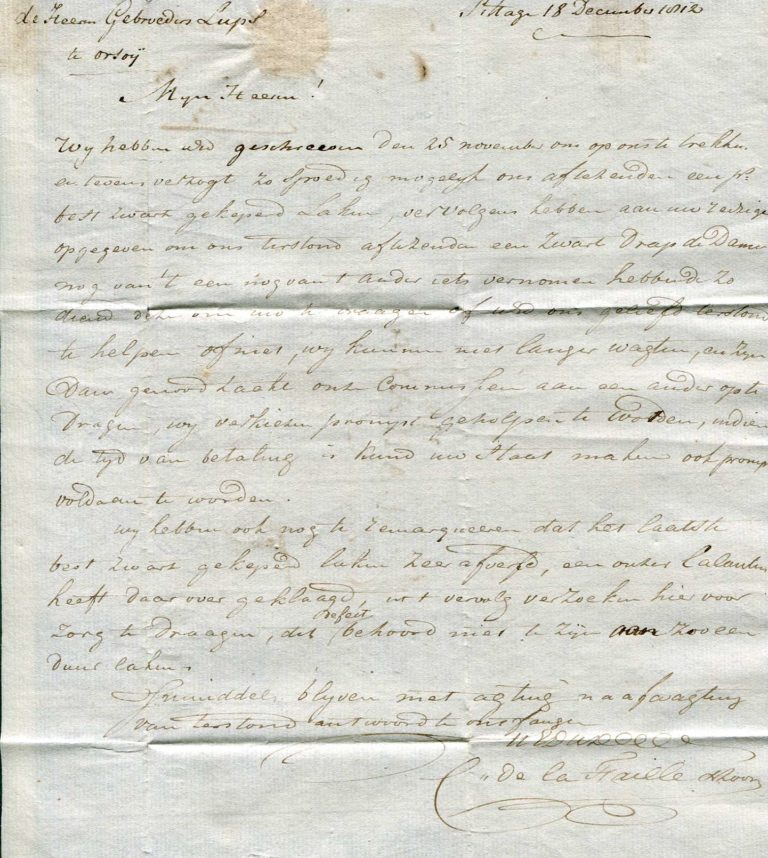 de Heeren Gebroeders Lups
S'Hage 18 December 1812
te orsoij
Myn Heeren!
Wy hebben UEd geschreeven den 25 november om op ons te trekken
en tevens verzogt zo spoedig mogelyk ons aftezenden een ps
best zwart gekeperd Laken, vervolgens hebben aan uw reiziger
opgegeven om ons terstond aftezenden een zwart Drap de Dame
nog van't een nog van't ander iets vernomen hebbende zo
diend deze om uw te vragen of UEd ons geliefd terstond
te helpen of niet, wy kunnen niet langer wagten, en zyn
Daar genoodzaakt onze Commissien aan een ander op te
Dragen, wy verkiezen prompt geholpen te worden, indien
de tyd van betaling is kund uw staat maken ook prompt
voldaan te worden.
wy hebben ook nog te remarqueeren dat het laatste
best zwart gekeperd laken zeer afverfd, een onzer Calanten
heeft daar over geklaagd, wt vervolg verzoeken hier voor
zorg te draagen, dit defect behoord niet te zyn aan zoo een
duur laken.
Inmiddels blyven met agting naafwagting
van terstond antwoord te ontfangen
UEDWDDDD
de la Faille & Zoon